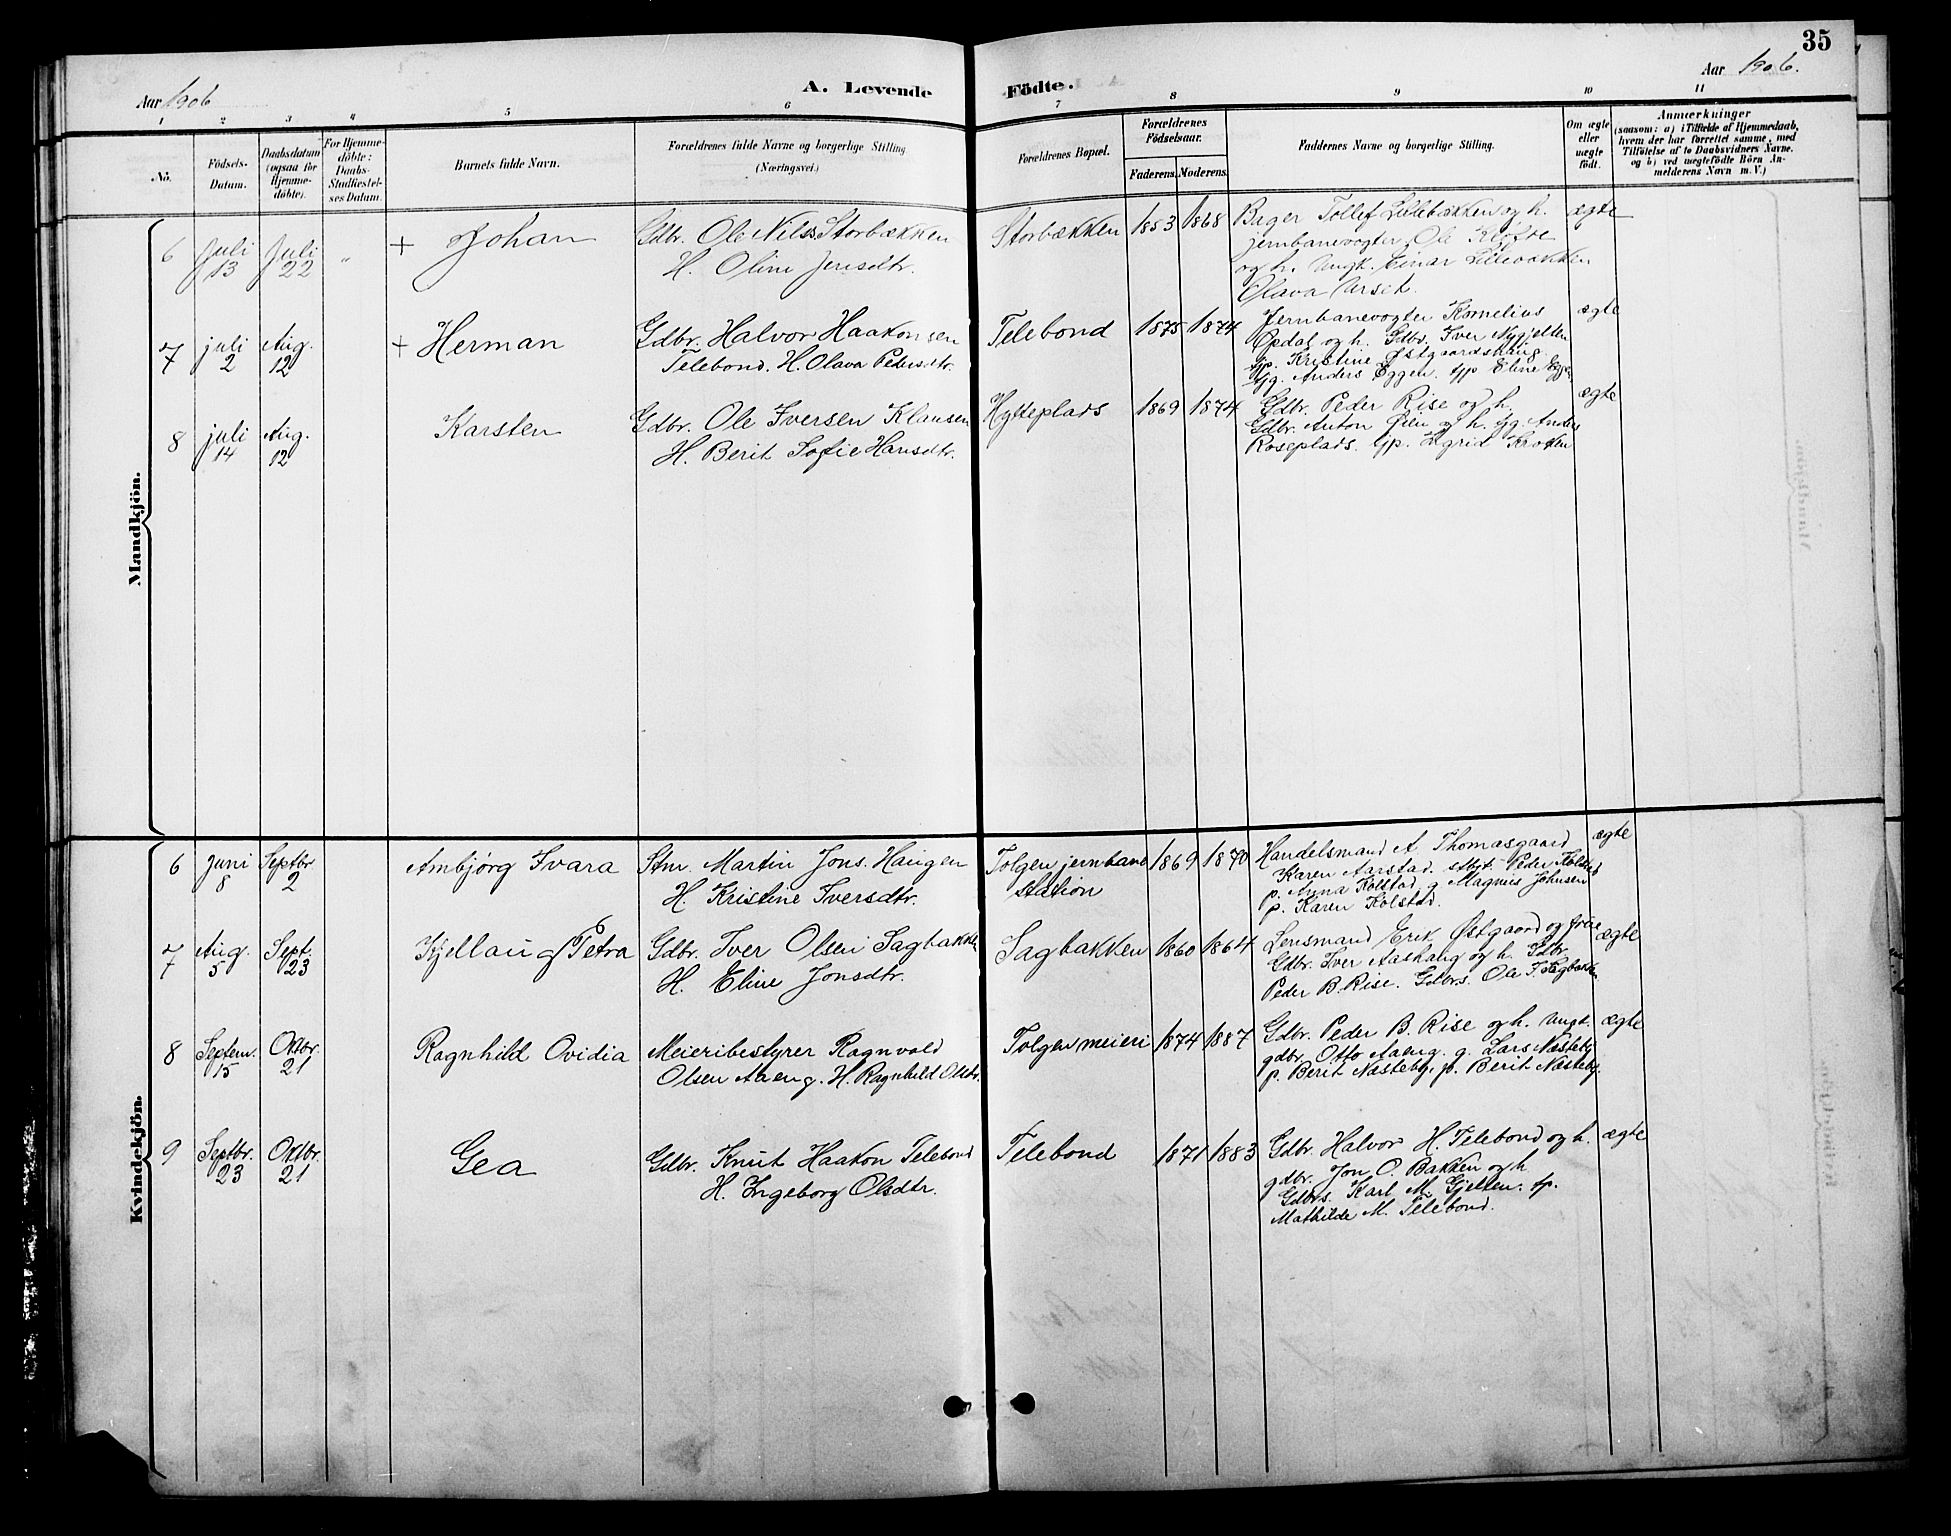 35
Aar 1906
A. Levende Födte.
Aar 1906.
1 2 3 4 5 6 7 8 9 10 11
No.
Födsels-
Datum.
Daabsdatum
(ogsaa for
Hjemme-
döbte).
For Hjemme-
döbte:
Daabs-
Stadfæstel-
ses Datum.
Barnets fulde Navn.
Forældrenes fulde Navne og borgerlige Stilling
(Næringsvei.)
Forældrenes Bopæl.
Forældrenes
Födselsaar.
Faderens. Moderens.
Faddernes Navne og borgerlige Stilling.
Om ægte
eller
uægte
födt.
Anmærkninger
(saasom: a) i Tilfælde af Hjemmedaab,
hvem der har forrettet samme, med
Tilföielse af to Daabsvidners Navne.
og b) ved uegtefödte Börn An-
melderens Navn m. V.)
Mandkjön.
6 Juli 13 Juli 22 " + Johan
Gdbr. Ole Nilss. Storbækken
H. Oline Jensdtr.
Storbækken 1853 1868
Bager Tollef Lillebækken og h.
jernbanevogter Ole Kløfte
og h. Ungk. Einar Lillebækken
Olava Urset.
ægte
7 juli 2 Aug. 12 + Herman
Gdbr. Halvor Haakonsen
Telebond. H. Olava Pedersdtr.
Telebond 1875 1874
Jernbanevogter Kornelius
Opdal og h. Gdbr. Iver Nygjelten
tjp. Kristine Østgaardshaug
Ug. Anders Eggen. tjp Eline Eggen
ægte
8 juli 14 Aug. 12 Karsten
Gdbr. Ole Iversen Klausen
H. Berit Sofie Hansdtr.
Hytteplads 1869 1874
Gdbr. Peder Rise og h.
Gdbr. Anton Øien og h. Ug. Anders
Roseplads. tjp. Ingrid Kroken
ægte
Kvindekjön.
6 Juni 8 Septbr 2 Ambjørg Ivara
Stm. Martin Jons. Haugen
H. Kristine Iversdtr.
Tolgen jernbane
station
1869 1870
Handelsmand A Thomasgaard
Karen Aarstad. Peder Kolstad
p. Anna Kolstad g Magnus Johnsen
p. Karen Kolstad.
ægte
7 Aug. 5 Sept. 23 Kjellaug Petra
Gdbr. Iver Olsen Sagbakken
H. Eline Jonsdtr.
Sagbakken 1860 1864
Lensmand Erik Østgaard og frue
Gdbr. Iver Aashaug og h. Gdbr.
Peder B. Rise. Gdbrs. Ole I. Sagbakken
ægte
8 Septem. 15 Oktbr. 21 Ragnhild Ovidia
Meieribestyrer Ragnvald
Olsen Aaeng. H. Ragnhild Olsdtr.
Tolgen meieri 1874 1887
Gdbr. Peder B. Rise og h. Ungt.
gdbr. Otto Aaeng. g. Lars Næsteby
p. Berit Næsteby, p. Berit Næsteby.
ægte
9 Septbr. 23 Oktbr. 21 Gea
Gdbr. Knut Haakon Telebond
H. Ingeborg Olsdtr.
Telebond 1871 1883
Gdbr. Halvor H. Telebond og h.
gdbr. Jon O. Bakken og h
Gdbrs. Karl M. Gjelten. tp.
Mathilde M. Telebond.
ægte